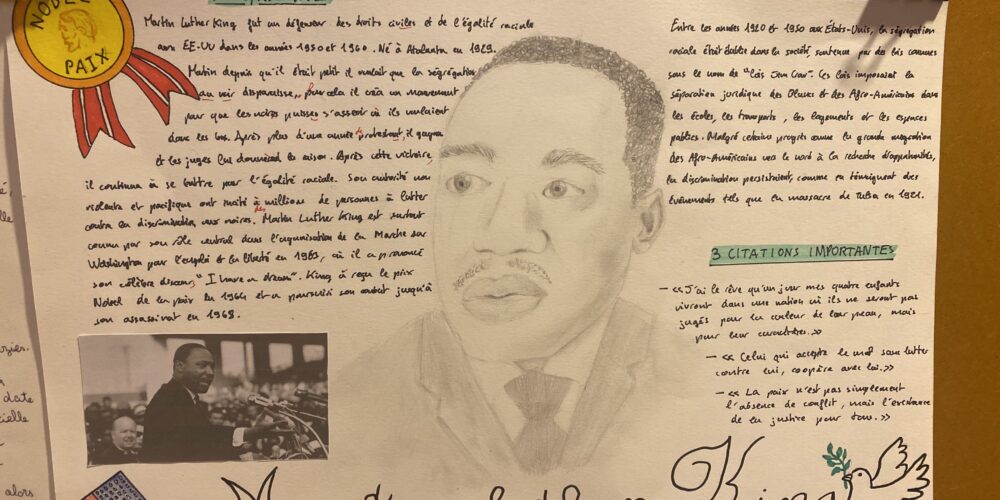 NOBEL
PAIX
Martin Luther King fut un défenseur des droits civiles et de l'égalité raciale
aux EE-UU dans les années 1950 et 1960. Né à Atalanta en 1929.
Matin depuis qu'il était petit il voulait que la ségrégation
au voir disparaisse, pour cela il créa un mouvement
pour que les noirs puisses s'asseoir où ils voulaient
dans les bus. Après plus d'une année de protestant, il gagna
et les juges lui donnèrent la raison. Après cette victoire,
il continua à se battre pour l'égalité raciale. Son autorité non
violente et pacifique ont incité à millions de personnes à lutter
contre la discrimination aux noires. Martin Luther King est surtout
connu par son rôle central dans l'organisation de la Marche sur
Washington par l'emploi et la liberté en 1963, où il a prononcé
son célèbre discours, "I have a dream". King à reçu le prix
Nobel de la paix en 1964 et a poursuivi son combat jusqu'à
son assassinat en 1968.
Entre les années 1920 et 1950 aux États-Unis, la ségrégation
raciale était établie dans la société, soutenue par des lois connues
sous le nom de "lois Jim Crow". Ces lois imposaient la
séparation juridique des Blancs et des Afro-Américains dans
les écoles, les transports, les logements et les espaces
publics. Malgré certains progrès comme la grande migration
des Afro-Américains vers le nord à la recherche d'opportunités,
la discrimination persistaient, comme en témoignent des
événements tels que un massacre de Tulsa en 1921.
3 CITATIONS IMPORTANTES
- «J'ai le rêve qu'un jour mes quatre enfants
vivront dans une nation où ils ne seront pas
jugés pour la couleur de leur peau, mais
pour leur caractère.»
- «Celui qui accepte le mal sans lutter
contre lui, coopère avec lui.»
- «La paix n'est pas simplement
l'absence de conflit, mais l'existence
de la justice pour tous.»
date
alors
King